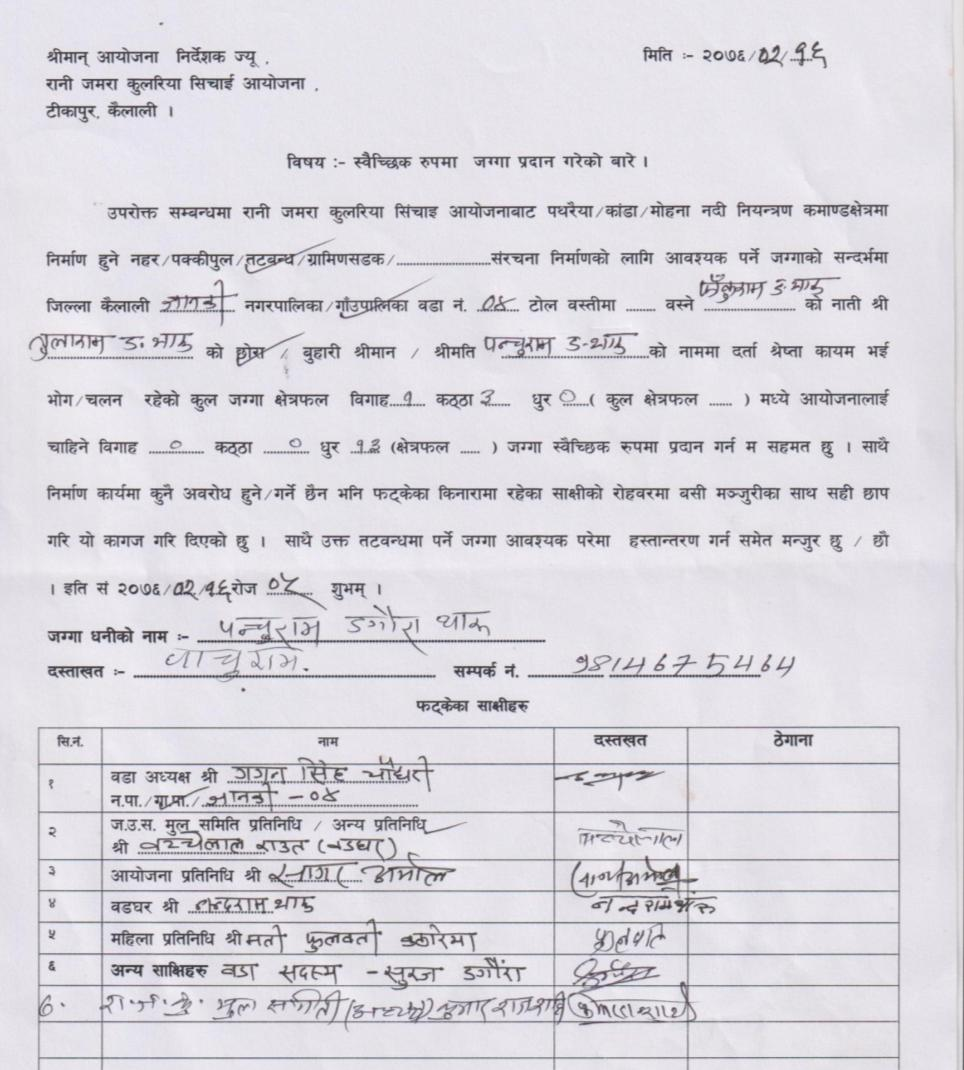 श्रीमान् आयोजना निर्देशक ज्यू ,
मिति :- २०७६/02/१६
रानी जमरा कुलरिया सिचाई आयोजना ,
टीकापुर, कैलाली ।
विषय :- स्वैच्छिक रुपमा जग्गा प्रदान गरेको बारे ।
उपरोक्त सम्बन्धमा रानी जमरा कुलरिया सिंचाइ आयोजनाबाट पथरैया/कांडा/मोहना नदी नियन्त्रण कमाण्डक्षेत्रमा
निर्माण हुने नहर/पक्कीपुल/तटबन्ध/ग्रामिणसडक/....................संरचना निर्माणको लागि आवश्यक पर्ने जग्गाको सन्दर्भमा
जिल्ला कैलाली जानकी नगरपालिका/गाँउपालिका वडा नं. ०४ टोल वस्तीमा ....... वस्ने ड.थारु को नाती श्री
ड.थारु को छोरा / बुहारी श्रीमान / श्रीमति पन्चुराम ड.थारु को नाममा दर्ता श्रेष्ता कायम भई
भोग/चलन रहेको कुल जग्गा क्षेत्रफल विगाह..१.. कठ्ठा ३ धुर ० ( कुल क्षेत्रफल ...... ) मध्ये आयोजनालाई
चाहिने विगाह ० कठ्ठा ० धुर १३ (क्षेत्रफल ..... ) जग्गा स्वैच्छिक रुपमा प्रदान गर्न म सहमत छु । साथै
निर्माण कार्यमा कुनै अवरोध हुने/गर्ने छैन भनि फट्केका किनारामा रहेका साक्षीको रोहवरमा बसी मञ्जुरीका साथ सही छाप
गरि यो कागज गरि दिएको छु । साथै उक्त तटवन्धमा पर्ने जग्गा आवश्यक परेमा हस्तान्तरण गर्न समेत मन्जुर छु / छौ
। इति सं २०७६/02/१६ रोज ०५ शुभम् ।
जग्गा धनीको नाम :- पन्चुराम डगौरा थारु
दस्ताखत :- पाचुराम. सम्पर्क नं. 9814675464
फट्केका साक्षीहरु
सि.नं. नाम दस्तखत ठेगाना
१ वडा अध्यक्ष श्री गगन सिंह चौधरी
न.पा./गा.पा./ जानकी -०४
२ ज.उ.स. मुल समिति प्रतिनिधि / अन्य प्रतिनिधि
श्री बच्चेलाल राउत
३ आयोजना प्रतिनिधि श्री सागर अर्माल
४ वडघर श्री नन्दराम थारु नन्दराम थारु
५ महिला प्रतिनिधि श्रीमती फुलवती कठरिया फुलवति
६ अन्य साक्षिहरु वडा सदस्य - सुरज डगौरा
७. रा.ज.कु. मुल समिती (अध्यक्ष)